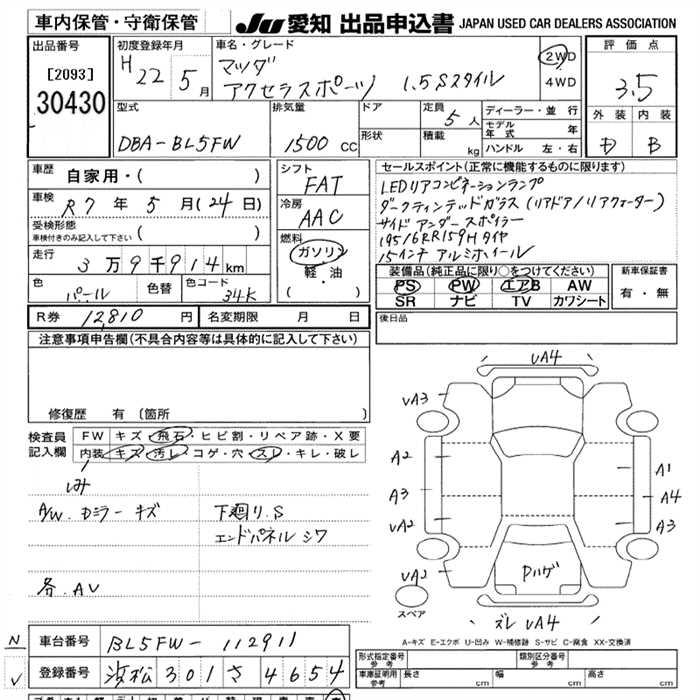 車内保管・守衛保管
JU 愛知 出品申込書 JAPAN USED CAR DEALERS ASSOCIATION
出品番号
[2093]
30430
初度登録年月
H 22 5月
車名・グレード
マツダ
アクセラスポーツ 1.5Sスタイル
2WD
4WD
評価点
3.5
外装 内装
D B
型式
DBA-BL5FW
排気量
1500 cc
ドア
形状
定員 5人
積載 kg
ディーラー・並行
モデル年式 年
ハンドル 左・右
車歴 自家用・( )
車検 R7年 5月(24日)
受検形態
車検付きのみ記入して下さい ( )
走行 3万9千914km
色 パール 色替 色コード 34K
シフト
FAT
冷房
AAC
燃料
ガソリン
軽・油
( ・ )
セールスポイント(正常に機能するものに限ります)
LEDリアコンビネーションランプ
ダークティンテッドガラス(リアドア/リアクォーター)
サイドアンダースポイラー
195/6RR159Hタイヤ
15インチアルミホイール
装備品(純正品に限り○をつけてください)
PS PW エアB AW
SR ナビ TV カワシート
新車保証書
有・無
R券 12,810円 名変期限 月 日
後日品
注意事項申告欄(不具合内容等は具体的に記入して下さい)
修復歴 有 〔箇所
検査員記入欄
FW キズ・飛石・ヒビ割・リペア跡・X要
内装 キズ・汚レ・コゲ・穴・スレ・キレ・破レ
シミ
A/W. Dミラーキズ
下廻り.S
エンドパネルシワ
各.AV
UA4
UA3
A2
A1
A3
A4
UA2
A3
UA2
Pハゲ
スペア
ズレ UA4
A-キズ E-エクボ U-凹み W-補修跡 S-サビ C-腐食 XX-交換済
N
車台番号 BL5FW-112911
V
登録番号 浜松301さ4654
形式指定番号
参考
類別区分番号
参考
車庫証明用
参考
長さ cm 幅 cm 高さ cm